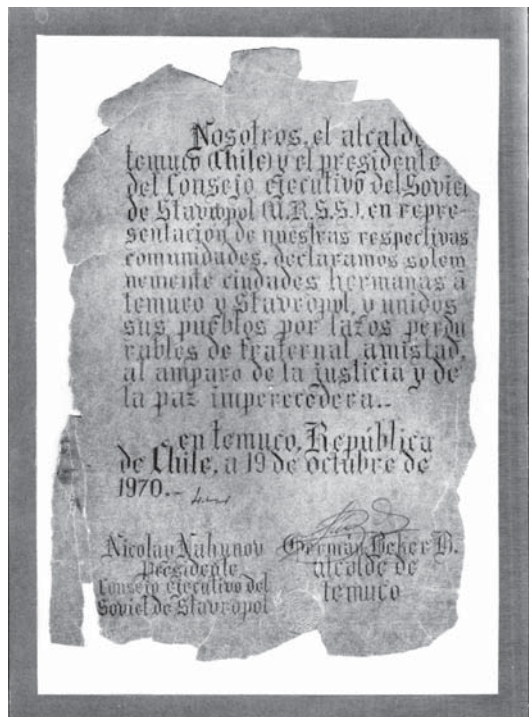 Nosotros, el alcalde
temuco (Chile) y el presidente
del Consejo ejecutivo del Soviet
de Stavropol (U.R.S.S.), en repre-
sentación de nuestras respectivas
comunidades, declaramos solem
nemente ciudades hermanas a
temuco y Stavropol, y unidos
sus pueblos por lazos perdu
rables de fraternal amistad,
al amparo de la justicia y de
la paz imperecedera..-
en temuco, República
de Chile, a 19 de octubre de
1970.-
Nicolay Nahunov
Presidente
Consejo ejecutivo del
Soviet de Stavropol
Germán Beker B.
alcalde de
temuco